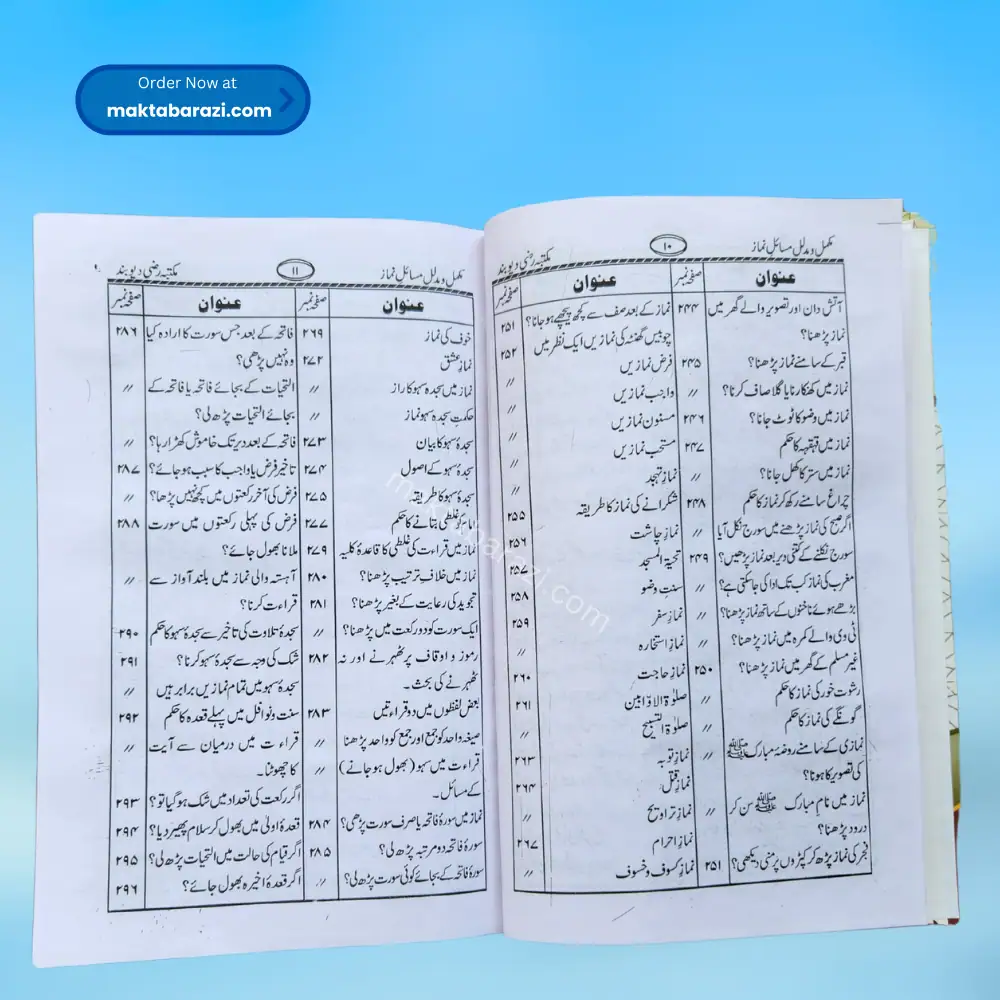 Order Now at
maktabarazi.com
مکمل و مدلل مسائل نماز
۱۰
مکتبہ رضی دیوبند
عنوان
صفحہ نمبر
عنوان
صفحہ نمبر
آتش دان اور تصویر والے گھر میں
نماز پڑھنا؟
۲۴۴
قبر کے سامنے نماز پڑھنا؟
نماز میں کھنکارنا یا گلا صاف کرنا؟
۲۴۵
نماز میں وضو کا ٹوٹ جانا؟
〃
نماز میں قہقہہ کا حکم
۲۴۶
نماز میں ستر کا کھل جانا؟
۲۴۷
چراغ سامنے رکھ کر نماز کا حکم
〃
اگر صبح کی نماز پڑھنے میں سورج نکل آیا
۲۴۸
سورج نکلنے کے کتنی دیر بعد نماز پڑھیں؟
〃
مغرب کی نماز کب تک ادا کی جاسکتی ہے؟
۲۴۹
بڑھے ہوئے ناخنوں کے ساتھ نماز پڑھنا؟
〃
ٹی وی والے کمرہ میں نماز پڑھنا؟
〃
غیر مسلم کے گھر میں نماز پڑھنا؟
〃
رشوت خور کی نماز کا حکم
۲۵۰
گونگے کی نماز کا حکم
〃
نمازی کے سامنے روضۂ مبارک ﷺ
کی تصویر کا ہونا؟
〃
نماز میں نام مبارک ﷺ سن کر
درود پڑھنا؟
〃
فجر کی نماز پڑھ کر کپڑوں پر منی دیکھی؟
۲۵۱
نماز کے بعد صف سے کچھ پیچھے ہو جانا؟
۲۵۱
چوبیس گھنٹہ کی نمازیں ایک نظر میں
۲۵۲
فرض نمازیں
〃
واجب نمازیں
〃
مسنون نمازیں
〃
مستحب نمازیں
〃
نماز تہجد
〃
شکرانے کی نماز کا طریقہ
۲۵۵
نماز چاشت
۲۵۶
تحیۃ المسجد
۲۵۷
سنت وضو
۲۵۸
نماز سفر
۲۵۹
نماز استخارہ
〃
نماز حاجت
۲۶۰
صلوٰۃ الاوّابین
۲۶۱
صلوٰۃ التسبیح
〃
نماز توبہ
۲۶۳
نماز قتل
۲۶۴
نماز تراویح
〃
نماز احرام
۲۶۷
نماز کسوف و خسوف
〃
مکمل و مدلل مسائل نماز
۱۱
مکتبہ رضی دیوبند
عنوان
صفحہ نمبر
عنوان
صفحہ نمبر
خوف کی نماز
۲۶۹
نماز عشق
۲۷۲
نماز میں سجدہ سہو کا راز
〃
حکمت سجدہ سہو نماز
〃
سجدۂ سہو کا بیان
۲۷۳
سجدۂ سہو کے اصول
۲۷۴
سجدۂ سہو کا طریقہ
۲۷۵
امام کو غلطی بتانے کا حکم
۲۷۷
نماز میں قراءت کی غلطی کا قاعدۂ کلیہ
۲۷۹
نماز میں خلاف ترتیب پڑھنا؟
۲۸۰
تجوید کی رعایت کے بغیر پڑھنا؟
۲۸۱
ایک سورت کو دو رکعت میں پڑھنا؟
〃
رموز و اوقاف پر ٹھہرنے اور نہ
۲۸۲
ٹھہرنے کی بحث۔
بعض لفظوں میں دو قراءتیں
۲۸۳
صیغہ واحد کو جمع اور جمع کو واحد پڑھنا
〃
قراءت میں سہو (بھول ہو جانے)
〃
کے مسائل۔
نماز میں سورۂ فاتحہ یا صرف سورت پڑھی؟
۲۸۴
سورۂ فاتحہ دو مرتبہ پڑھ لی؟
۲۸۵
سورۂ فاتحہ کے بجائے کوئی سورت پڑھ لی؟
〃
فاتحہ کے بعد جس سورت کا ارادہ کیا
۲۸۶
وہ نہیں پڑھی؟
التحیات کے بجائے فاتحہ یا فاتحہ کے
〃
بجائے التحیات پڑھ لی؟
فاتحہ کے بعد دیر تک خاموش کھڑا رہا؟
〃
تاخیر فرض یا واجب کا سبب ہو جائے؟
۲۸۷
فرض کی آخر رکعتوں میں کچھ نہیں پڑھا؟
〃
فرض کی پہلی رکعتوں میں سورت
۲۸۸
ملانا بھول جائے؟
آہستہ والی نماز میں بلند آواز سے
〃
قراءت کرنا؟
سجدۂ تلاوت کی تاخیر سے سجدۂ سہو کا حکم
۲۹۰
شک کی وجہ سے سجدۂ سہو کرنا؟
۲۹۱
سجدۂ سہو میں تمام نمازیں برابر ہیں
〃
سنت و نوافل میں پہلے قعدہ کا حکم
۲۹۲
قراءت میں درمیان سے آیت
〃
کا چھوٹنا۔
اگر رکعت کی تعداد میں شک ہو گیا تو؟
۲۹۳
قعدۂ اولیٰ میں بھول کر سلام پھیر دیا؟
۲۹۴
اگر قیام کی حالت میں التحیات پڑھ لی؟
۲۹۵
اگر قعدۂ اخیرہ بھول جائے؟
۲۹۶
maktabarazi.com